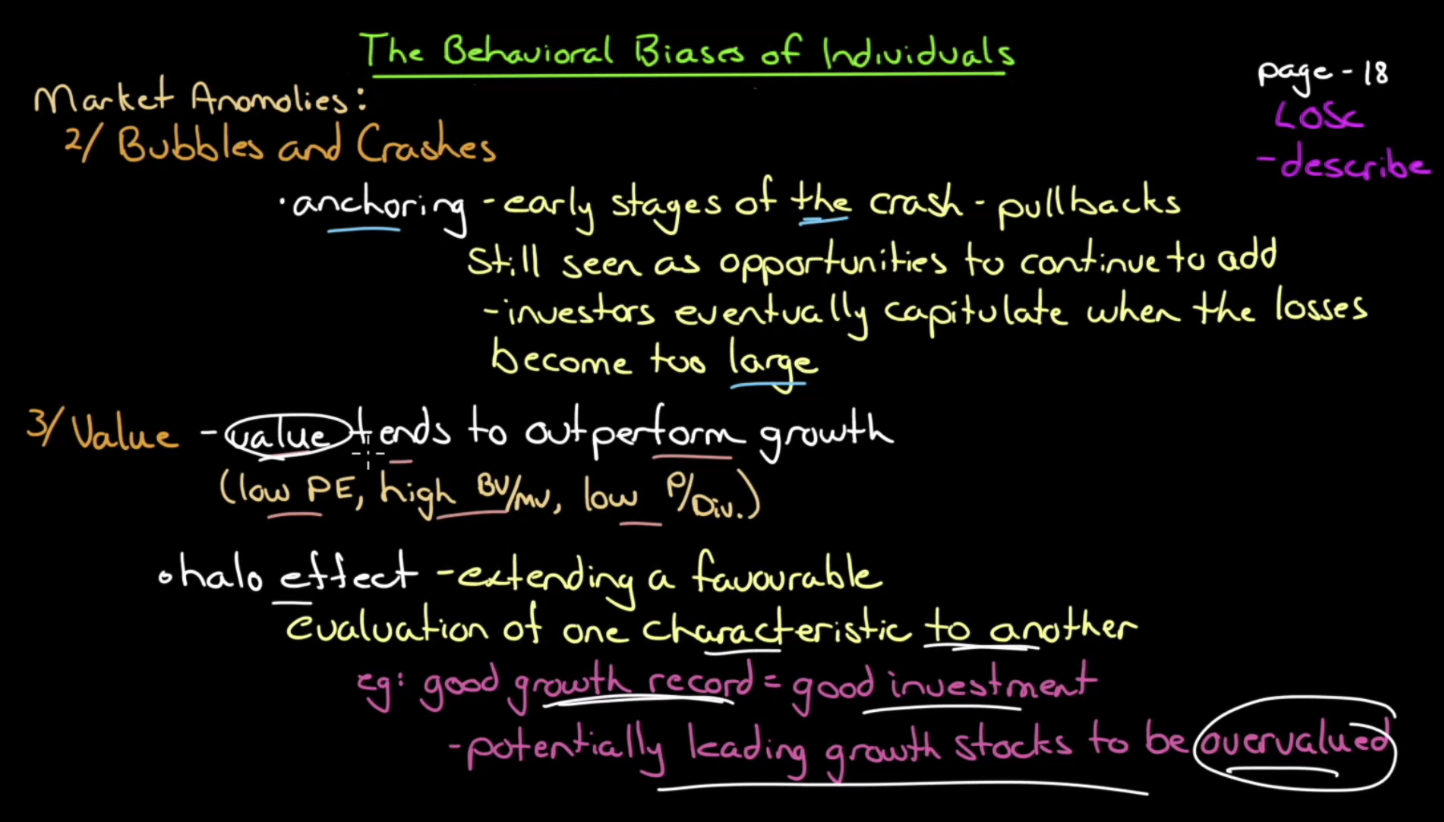 The Behavioral Biases of Individuals
page - 18
Market Anomolies:
LOSc
2/ Bubbles and Crashes
- describe
· anchoring - early stages of the crash - pullbacks
still seen as opportunities to continue to add
- investors eventually capitulate when the losses
become too large
3/ Value - value tends to outperform growth
(low PE, high BV/MV, low P/Div.)
• halo effect - extending a favourable
evaluation of one characteristic to another
eg: good growth record = good investment
- potentially leading growth stocks to be overvalued